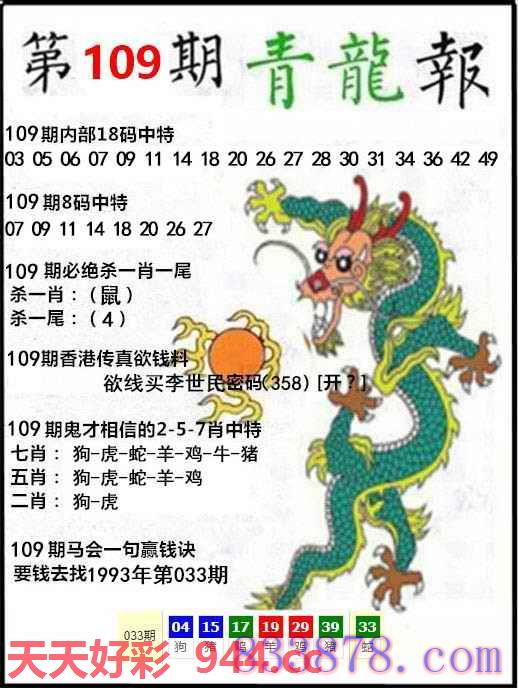 第109期青龍報
109期内部18码中特
03 05 06 07 09 11 14 18 20 26 27 28 30 31 34 36 42 49
109期8码中特
07 09 11 14 18 20 26 27
109期必绝杀一肖一尾
杀一肖：（鼠）
杀一尾：（4）
109期香港传真欲钱料
欲线买李世民密码(358) [开？]
109期鬼才相信的2-5-7肖中特
七肖：狗-虎-蛇-羊-鸡-牛-猪
五肖：狗-虎-蛇-羊-鸡
二肖：狗-虎
109期马会一句赢钱诀
要钱去找1993年第033期
033期 04 15 17 19 29 39 33
狗 猪 鸡 羊 鸡 猪 蛇
天天好彩 944.cc